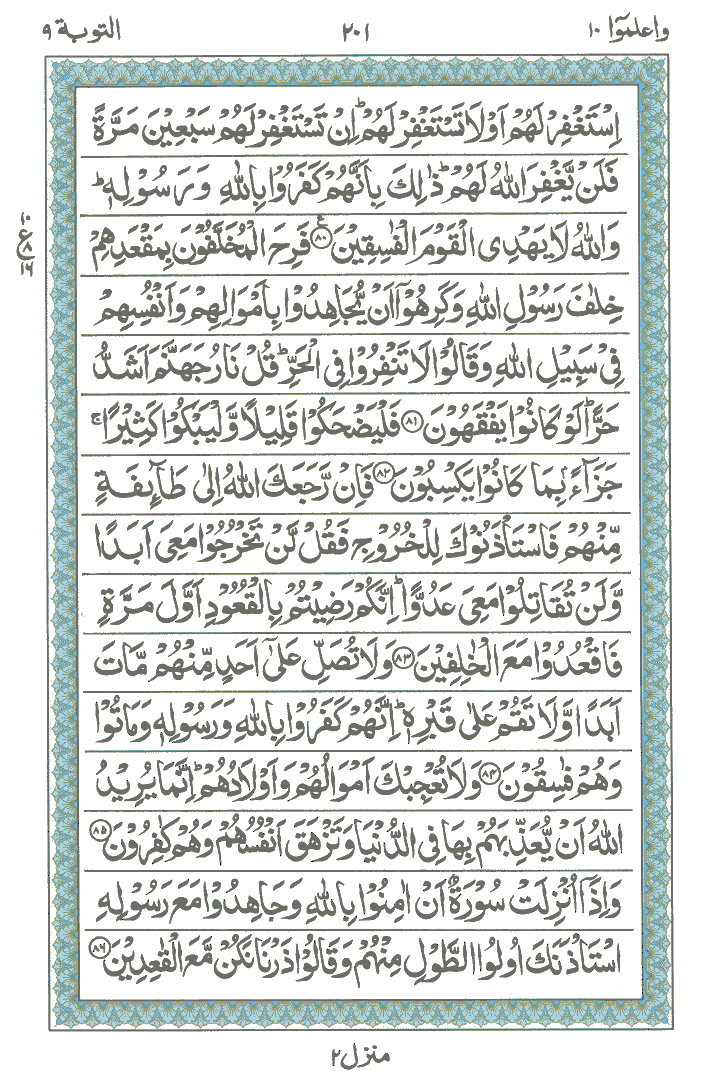 واعلموٓا ١٠ ٢٠١ التوبة ٩
اِسْتَغْفِرْ لَهُمْ اَوْ لَا تَسْتَغْفِرْ لَهُمْ ؕ اِنْ تَسْتَغْفِرْ لَهُمْ سَبْعِيْنَ مَرَّةً
فَلَنْ يَّغْفِرَ اللّٰهُ لَهُمْ ؕ ذٰلِكَ بِاَنَّهُمْ كَفَرُوْا بِاللّٰهِ وَرَسُوْلِهٖ ؕ
وَاللّٰهُ لَا يَهْدِى الْقَوْمَ الْفٰسِقِيْنَ ﴿٨٠﴾ ع فَرِحَ الْمُخَلَّفُوْنَ بِمَقْعَدِهِمْ
١٠ ع ٨ ١٦
خِلٰفَ رَسُوْلِ اللّٰهِ وَكَرِهُوْٓا اَنْ يُّجَاهِدُوْا بِاَمْوَالِهِمْ وَاَنْفُسِهِمْ
فِيْ سَبِيْلِ اللّٰهِ وَقَالُوْا لَا تَنْفِرُوْا فِى الْحَرِّ ؕ قُلْ نَارُ جَهَنَّمَ اَشَدُّ
حَرًّا ؕ لَوْ كَانُوْا يَفْقَهُوْنَ ﴿٨١﴾ فَلْيَضْحَكُوْا قَلِيْلًا وَّلْيَبْكُوْا كَثِيْرًا ۚ
جَزَآءًۢ بِمَا كَانُوْا يَكْسِبُوْنَ ﴿٨٢﴾ فَاِنْ رَّجَعَكَ اللّٰهُ اِلٰى طَآئِفَةٍ
مِّنْهُمْ فَاسْتَاْذَنُوْكَ لِلْخُرُوْجِ فَقُلْ لَّنْ تَخْرُجُوْا مَعِىَ اَبَدًا
وَّلَنْ تُقَاتِلُوْا مَعِىَ عَدُوًّا ؕ اِنَّكُمْ رَضِيْتُمْ بِالْقُعُوْدِ اَوَّلَ مَرَّةٍ
فَاقْعُدُوْا مَعَ الْخٰلِفِيْنَ ﴿٨٣﴾ وَلَا تُصَلِّ عَلٰٓى اَحَدٍ مِّنْهُمْ مَّاتَ
اَبَدًا وَّلَا تَقُمْ عَلٰى قَبْرِهٖ ؕ اِنَّهُمْ كَفَرُوْا بِاللّٰهِ وَرَسُوْلِهٖ وَمَاتُوْا
وَهُمْ فٰسِقُوْنَ ﴿٨٤﴾ وَلَا تُعْجِبْكَ اَمْوَالُهُمْ وَاَوْلَادُهُمْ ؕ اِنَّمَا يُرِيْدُ
اللّٰهُ اَنْ يُّعَذِّبَهُمْ بِهَا فِى الدُّنْيَا وَتَزْهَقَ اَنْفُسُهُمْ وَهُمْ كٰفِرُوْنَ ﴿٨٥﴾
وَاِذَآ اُنْزِلَتْ سُوْرَةٌ اَنْ اٰمِنُوْا بِاللّٰهِ وَجَاهِدُوْا مَعَ رَسُوْلِهِ
اسْتَاْذَنَكَ اُولُوا الطَّوْلِ مِنْهُمْ وَقَالُوْا ذَرْنَا نَكُنْ مَّعَ الْقٰعِدِيْنَ ﴿٨٦﴾
منزل ٢